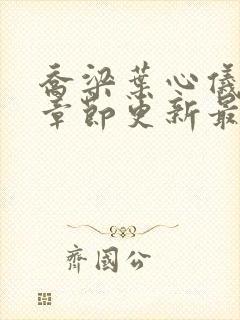 乔梁葉心儀
章節更新最
齊國公